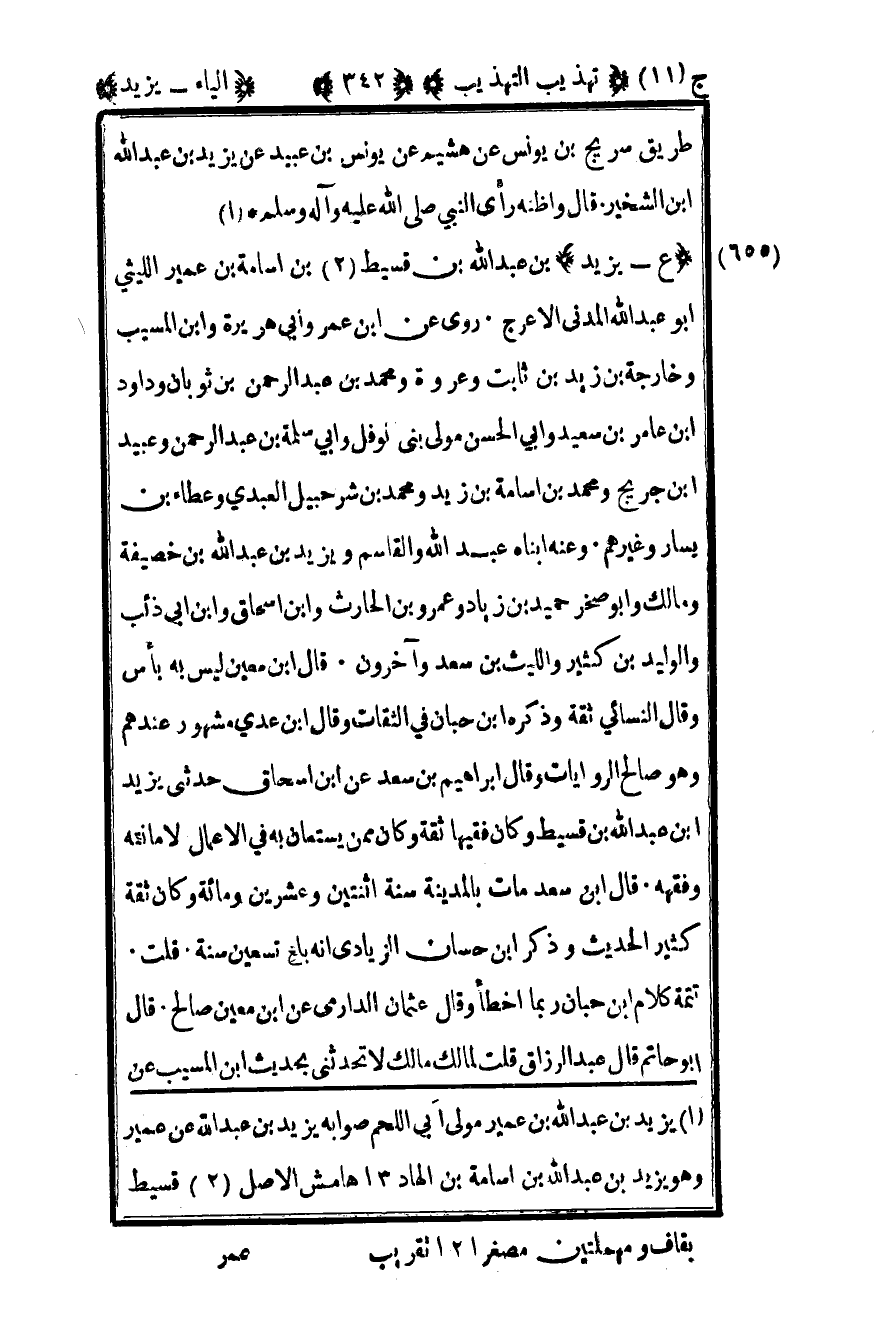 ج (١١) ﴿ تهذيب التهذيب ﴾ ﴿ ٣٤٢ ﴾ ﴿ الياء ــ يزيد ﴾
طريق سريج بن يونس عن هشيم عن يونس بن عبيد عن يزيد بن عبدالله
ابن الشخير٠ قال واظنه رأى النبي صلى الله عليه وآله وسلم٠ (١)
(٦٥٥) ﴿ع ــ يزيد ﴾ بن عبدالله بن قسيط (٢) بن اسامة بن عمير الليثي
ابو عبدالله المدنى الاعرج ٠ روى عن ابن عمر وأبي هريرة وابن المسيب
وخارجة بن زيد بن ثابت وعروة ومحمد بن عبد الرحمن بن ثوبان وداود
ابن عامر بن سعيد وابي الحسن مولى بنى نوفل وابي سلمة بن عبد الرحمن وعبيد
ابن جريج ومحمد بن اسامة بن زيد ومحمد بن شرحبيل العبدي وعطاء بن
يسار وغيرهم٠ وعنه ابناه عبد الله والقاسم ويزيد بن عبدالله بن خصيفة
ومالك وابو صخر حميد بن زياد وعمرو بن الحارث وابن اسحاق وابن ابي ذئب
والوليد بن كثير والليث بن سعد وآخرون ٠ قال ابن معين ليس به بأس
وقال النسائي ثقة وذكره ابن حبان في الثقات وقال ابن عدي مشهور عندهم
وهو صالح الروايات وقال ابراهيم بن سعد عن ابن اسحاق حدثنى يزيد
ابن عبدالله بن قسيط وكان فقيها ثقة وكان ممن يستعان به في الاعمال لامانته
وفقهه٠ قال ابن سعد مات بالمدينة سنة اثنتين وعشرين ومائة وكان ثقة
كثير الحديث وذكر ابن حسان الزيادى انه بلغ تسعين سنة٠ قلت٠
تتمة كلام ابن حبان ربما اخطأ وقال عثمان الدارمى عن ابن معين صالح٠ قال
ابو حاتم قال عبد الرزاق قلت لمالك مالك لا تحدثنى بحديث ابن المسيب عن
(١) يزيد بن عبدالله بن عمير مولى آبي اللحم صوابه يزيد بن عبدالله عن عمير
وهو يزيد بن عبدالله بن اسامة بن الهاد ١٣ هامش الاصل (٢) قسيط
بقاف ومهملتين مصغر ١٢ تقريب
عمر